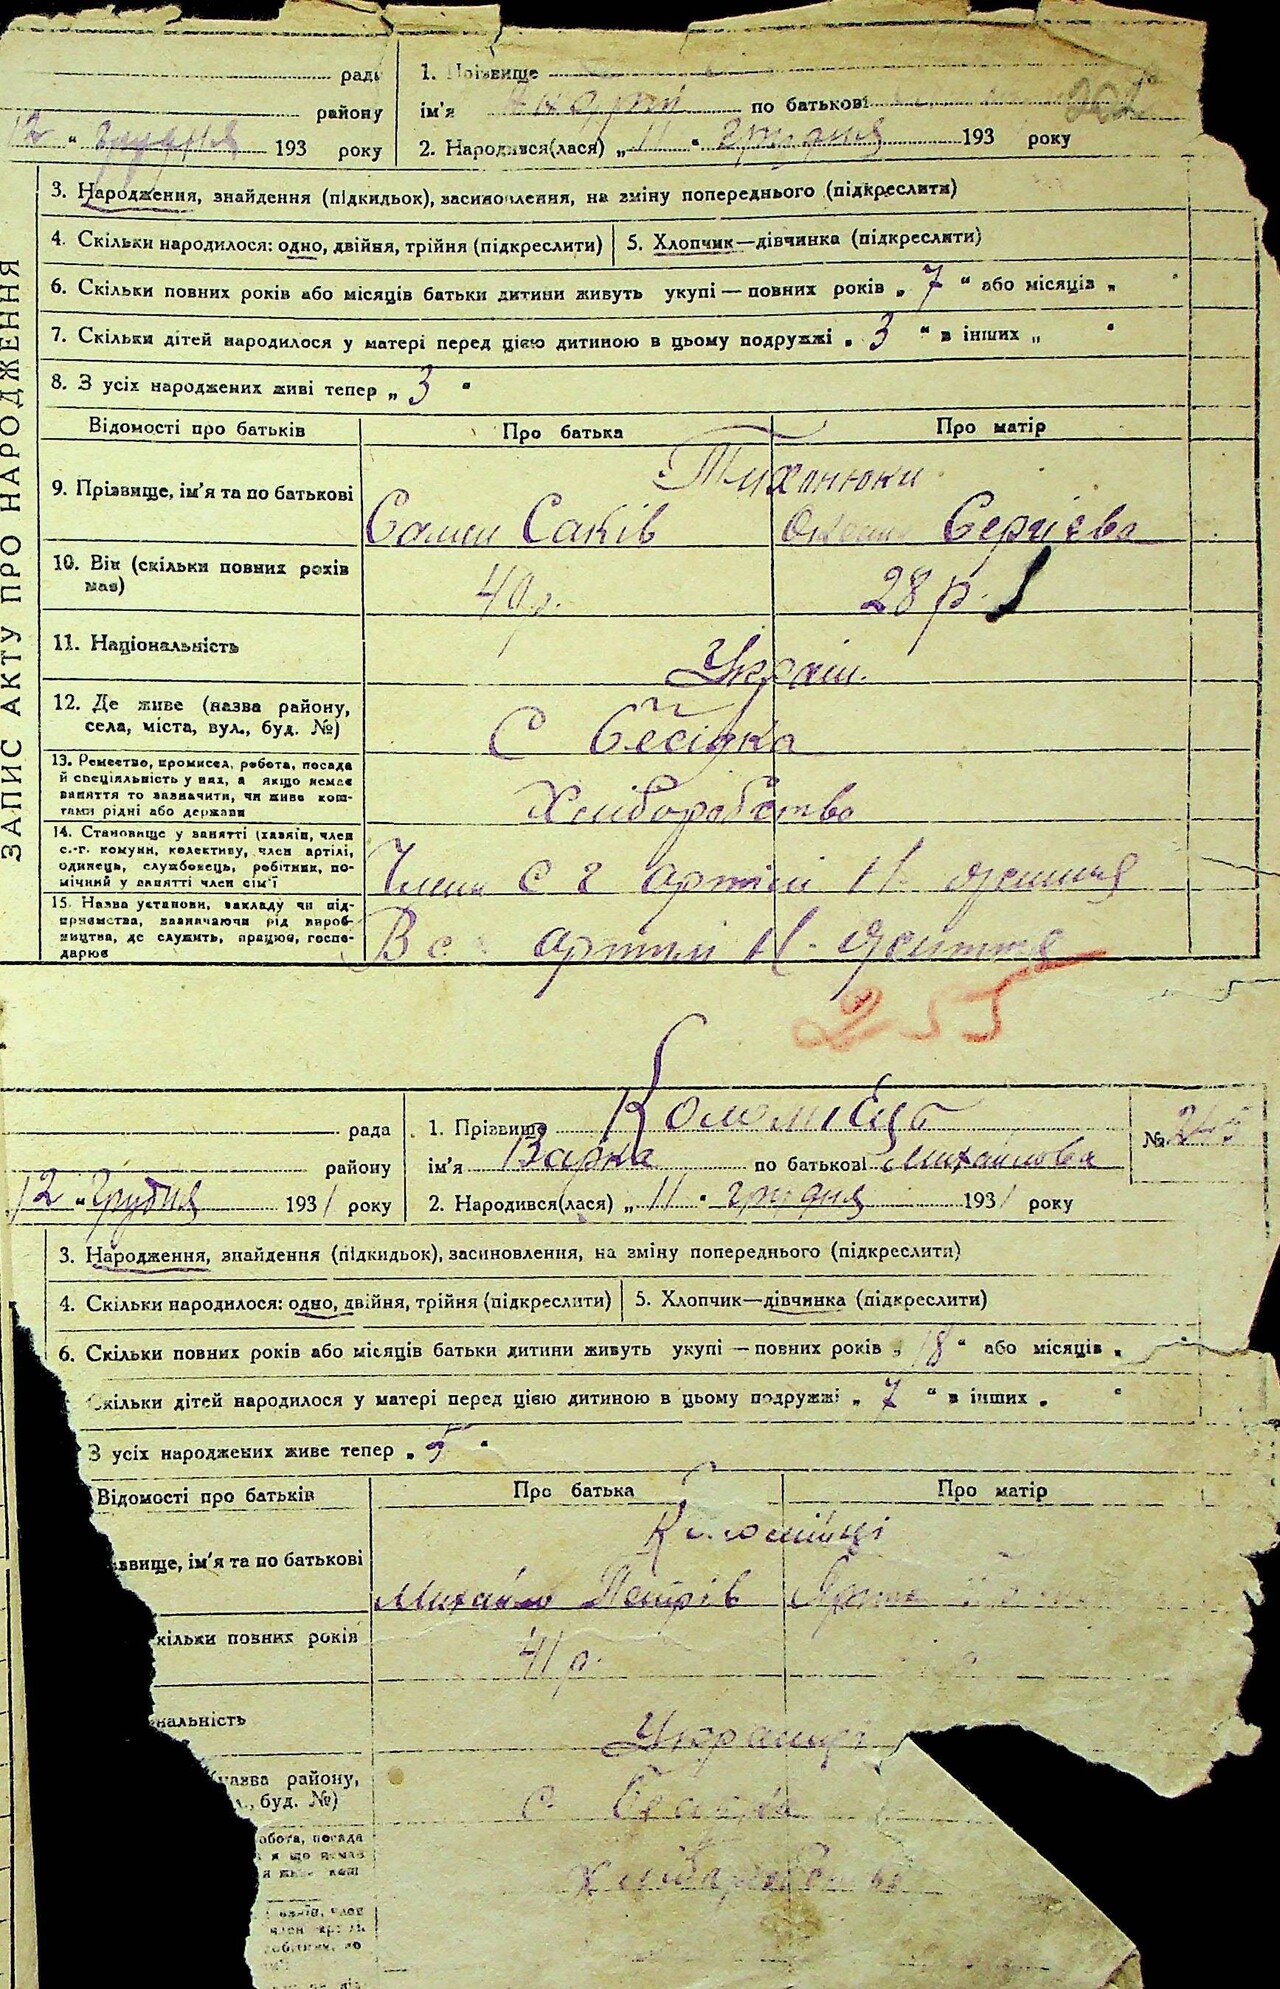 рада
1. Прізвище
району
ім'я Андрій по батькові
12 " грудня 193 року
2. Народився(лася) „ 11 " грудня 193 року
ЗАПИС АКТУ ПРО НАРОДЖЕННЯ
3. Народження, знайдення (підкидьок), засиновлення, на зміну попереднього (підкреслити)
4. Скільки народилося: одно, двійня, трійня (підкреслити)
5. Хлопчик—дівчинка (підкреслити)
6. Скільки повних років або місяців батьки дитини живуть укупі — повних років „ 7 " або місяців „ "
7. Скільки дітей народилося у матері перед цією дитиною в цьому подружжі „ 3 " в інших „ "
8. З усіх народжених живі тепер „ 3 "
Відомості про батьків Про батька Про матір
Тихонюки
9. Прізвище, ім'я та по батькові
Семен Саків Сергієва
10. Вік (скільки повних років має)
40 р. 28 р.
11. Національність
Україн.
12. Де живе (назва району,
села, міста, вул., буд. №)
С
13. Ремество, промисел, робота, посада
й спеціяльність у них, а якщо немає
заняття то зазначити, чи живе кош-
тами рідні або держави
Хліборобство
14. Становище у занятті (хазяїн, член
с.-г. комуни, колективу, член артілі,
одинець, службовець, робітник, по-
мічний у занятті член сім'ї
Член с г артілі Н. життя
15. Назва установи, закладу чи під-
приємства, зазначаючи рід вироб-
ництва, де служить, працює, госпо-
дарює
В с артілі Н. життя
255
рада
1. Прізвище Коломієць
№ 245
району
ім'я Варка по батькові Михайлова
12 " грудня 1931 року
2. Народився(лася) „ 11 " грудня 1931 року
3. Народження, знайдення (підкидьок), засиновлення, на зміну попереднього (підкреслити)
4. Скільки народилося: одно, двійня, трійня (підкреслити)
5. Хлопчик—дівчинка (підкреслити)
6. Скільки повних років або місяців батьки дитини живуть укупі — повних років „ 18 " або місяців „
Скільки дітей народилося у матері перед цією дитиною в цьому подружжі „ 7 " в інших „ "
З усіх народжених живе тепер „ 5 "
Відомості про батьків Про батька Про матір
Коломійці
звище, ім'я та по батькові
Михайло Петрів
кільки повних років
41 р.
нальність
Українці
(назва району,
., буд. №)
с.
обота, посада
Хліборобство